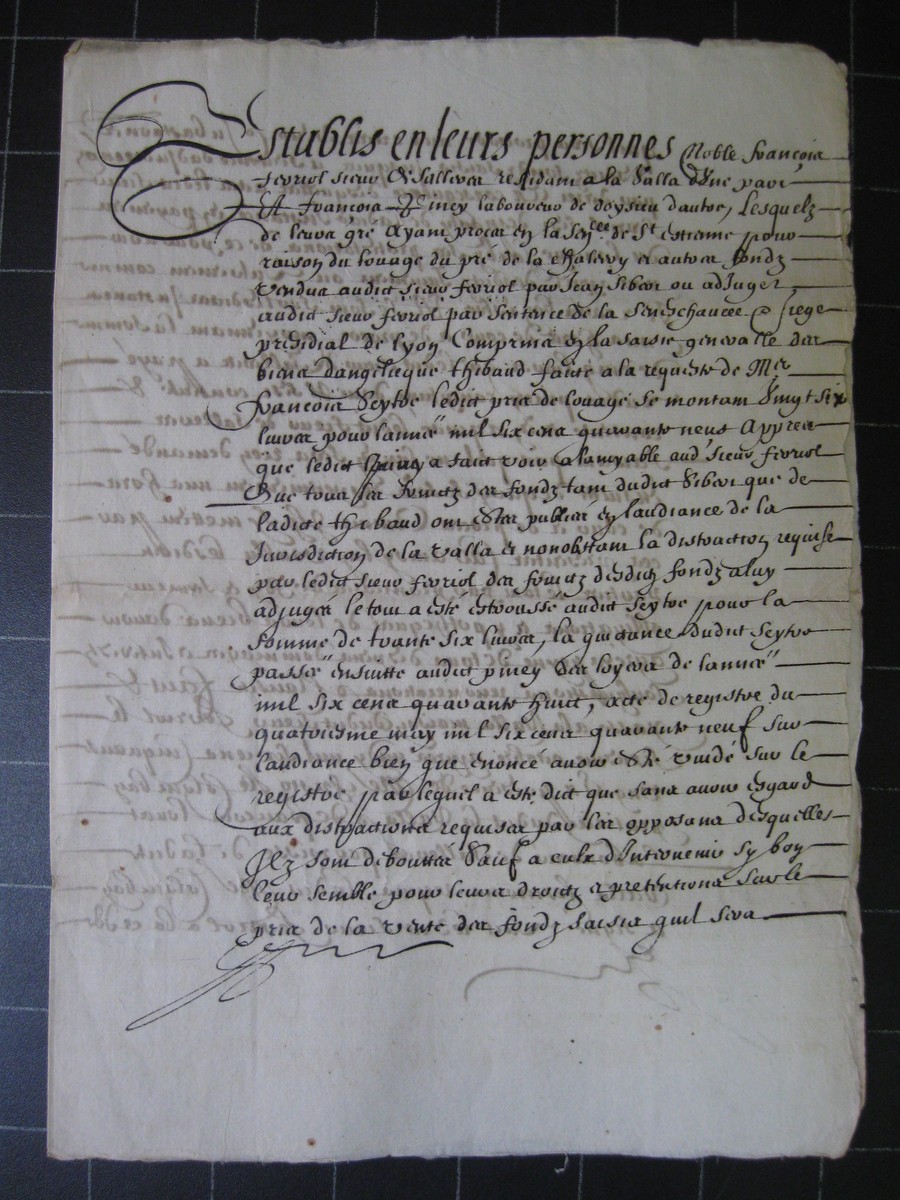 Establis en leurs personnes Noble françois
fevriol sieur de Sallivea residant a la Valla d'une part
Et françois piney laboureur de doysieu d'autre, Lesquelz
de leurs gré Ayant procez en la Sen.lle de St estienne pour
raison du louage du pré de la et autres fondz
vendus audict sieur fevriol par Jean Sibert ou adJugez
audict sieur fevriol par sentence de la Seneschaucee & siege
presidial de lyon Comprins en la saisie generalle des
biens dangelicque thibaud faicte a la requeste de Me
françois Seytre ledict pris de louage se montant Vingt six
livres pour lannee mil six cens quarante neuf Appres
que ledict piney a faict voir a lamyable aud' sieur fevriol
Que tous les fruictz des fondz tant dudict Sibert que de
ladicte thibaud ont estez publiez en laudiance de la
Jurisdiction de la valla et nonobstant la distraction requise
par ledict sieur fevriol des fruictz desdictz fondz a luy
adjugez le tout a esté estroussé audict Seytre pour la
somme de trante six livres, la quictance dudict Seytre
passee ensuitte audict piney des loyers de lannee
mil six cens quarante huict, acte de registre du
quatorsiesme may mil six cens quarante neuf sur
laudiance bien que enoncé avoir esté vuidé sur le
registre par lequel a esté dict que sans avoir esgard
aux distractions requises par les opposans desquelles
Ilz sont deboutes Sauf a eulx d'Intervenir sy bon
leur semble pour leurs droictz et pretentions sur le
pris de la vente des fondz saisis quil sera